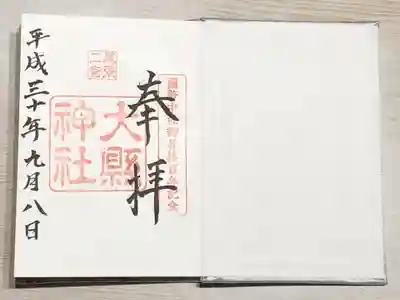 奉拝
大縣
神社
二宮
平成三十年九月八日